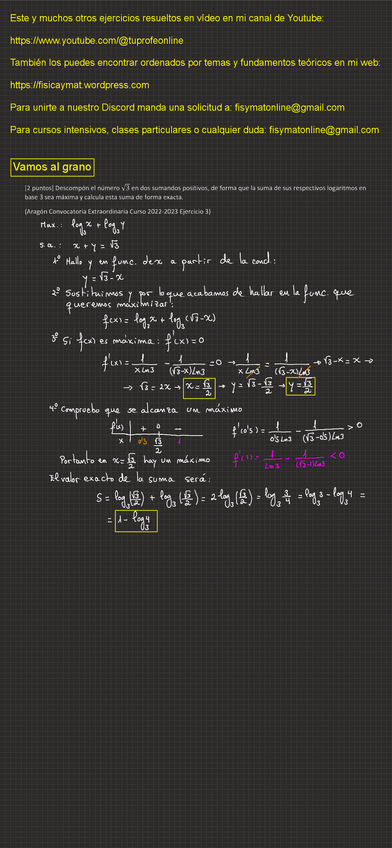 Este y muchos otros ejercicios resueltos en vídeo en mi canal de Youtube:
https://www.youtube.com/@tuprofeonline
También los puedes encontrar ordenados por temas y fundamentos teóricos en mi web:
https://fisicaymat.wordpress.com
Para unirte a nuestro Discord manda una solicitud a: fisymatonline@gmail.com
Para cursos intensivos, clases particulares o cualquier duda: fisymatonline@gmail.com
Vamos al grano
[2 puntos] Descompón el número √3 en dos sumandos positivos, de forma que la suma de sus respectivos logaritmos en
base 3 sea máxima y calcula esta suma de forma exacta.
(Aragón Convocatoria Extraordinaria Curso 2022-2023 Ejercicio 3)
Max.: log₃x + log₃y
s.a.: x + y = √3
1º Hallo y en func. de x a partir de la cond:
y = √3 - x
2º Sustituimos y por lo que acabamos de hallar en la func. que
queremos maximizar:
f(x) = log₃x + log₃(√3-x)
3º Si f(x) es máxima: f'(x) = 0
f'(x) = 1/(x Ln3) - 1/((√3-x)Ln3) = 0 → 1/(x Ln3) = 1/((√3-x)Ln3) → √3-x = x →
→ √3 = 2x → x = √3/2 → y = √3 - √3/2 → y = √3/2
4º Compruebo que se alcanza un máximo
f'(x) + 0 - f'(0'5) = 1/(0'5 Ln3) - 1/((√3-0'5)Ln3) > 0
x 0'5 √3/2 1
Por tanto en x = √3/2 hay un máximo f'(1) = 1/Ln3 - 1/((√3-1)Ln3) < 0
El valor exacto de la suma será:
S = log₃(√3/2) + log₃(√3/2) = 2log₃(√3/2) = log₃ 3/4 = log₃3 - log₃4 =
= 1 - log₃4